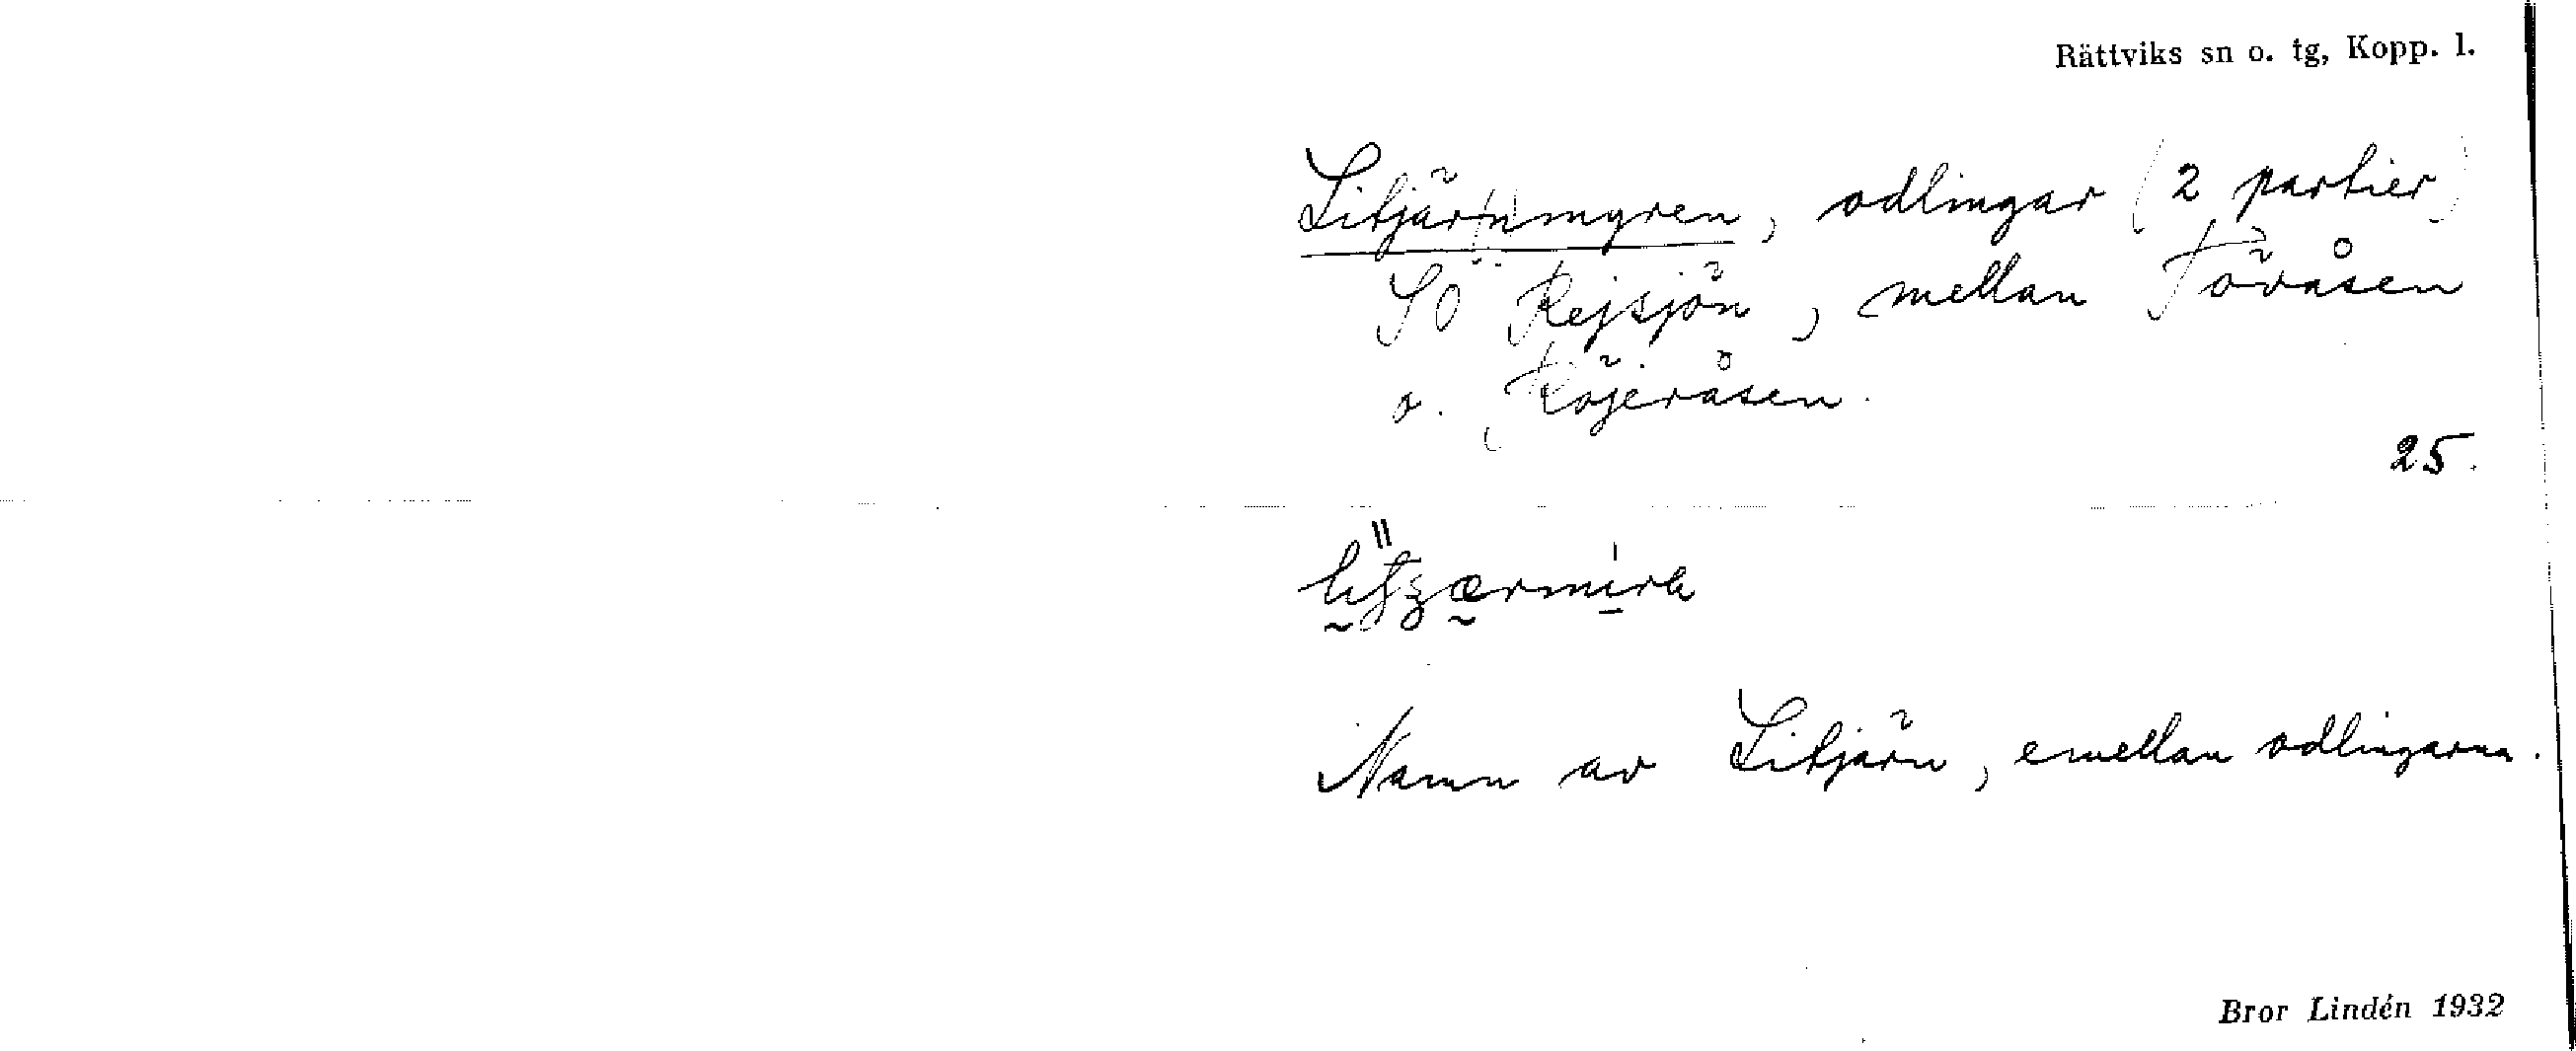 Rättviks sn o. tg, Kopp. l.
Litjär(n)myren, odlingar (2 partier)
SÖ Rejsjön, mellan Tövåsen
o. Röjeråsen.
25.
Namn av Litjärn, emellan odlingarna.
Bror Lindén 1932